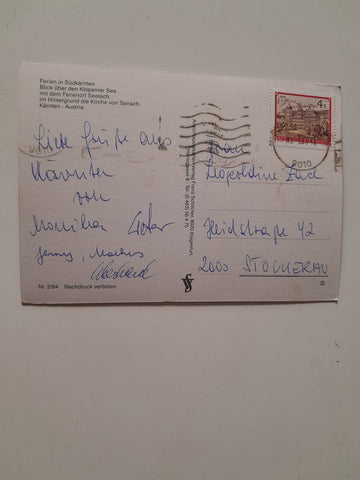 Ferien in Südkärnten
Blick über den Klopeiner See
mit dem Ferienort Seelach.
Im Hintergrund die Kirche von Tainach.
Kärnten - Austria
Liebe Grüße aus
Kärnten
von
Monika
Eberhard
Nr. 2/94 Nachdruck verboten
Franz Schilcher, 9020 Klagenfurt,
9010
Frau
Leopoldine
Heidstraße 42
2000 STOCKERAU